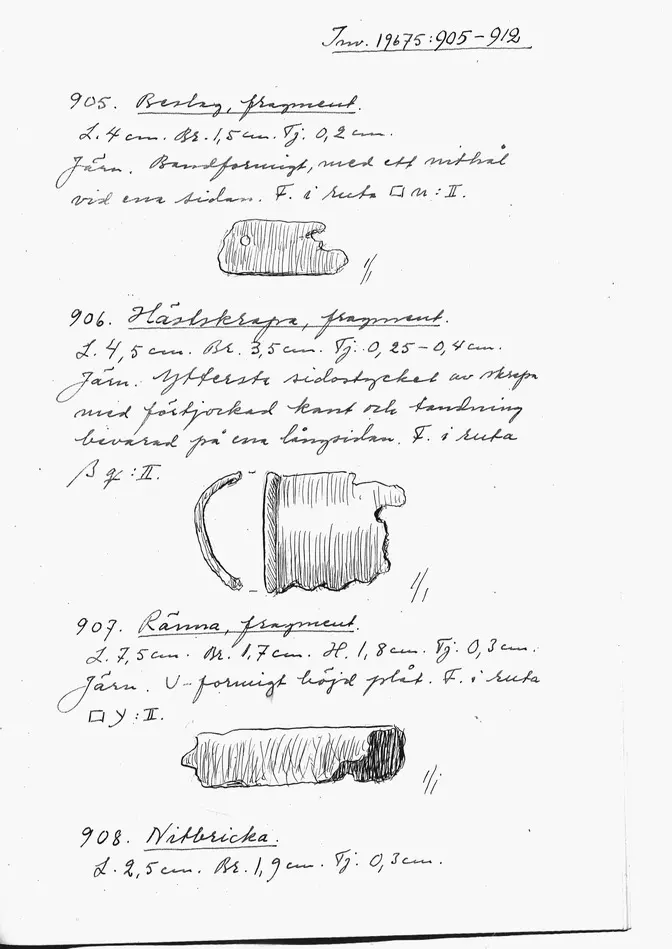 Inv. 19675:905-912
905. Beslag, fragment.
L. 4 cm. Br. 1,5 cm. Tj. 0,2 cm.
Järn. Bandformigt, med ett nithål
vid ena sidan. F. i ruta □ n : II.
1/1
906. Hästskrapa, fragment.
L. 4,5 cm. Br. 3,5 cm. Tj. 0,25-0,4 cm.
Järn. Yttersta sidostycket av skrapa
med förtjockad kant och tandning
bevarad på ena långsidan. F. i ruta
β : II.
1/1
907. Ränna, fragment.
L. 7,5 cm. Br. 1,7 cm. H. 1,8 cm. Tj. 0,3 cm.
Järn. U-formigt böjd plåt. F. i ruta
□ y : II.
1/1
908. Nitbricka.
L. 2,5 cm. Br. 1,9 cm. Tj. 0,3 cm.